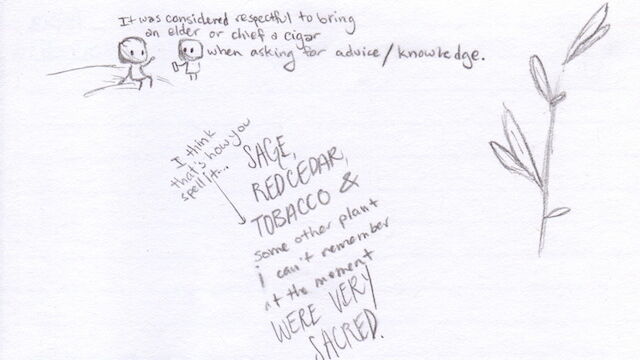 It was considered respectful to bring
an elder or chief a cigar
when asking for advice/knowledge.
I think
that's how you
spell it...
SAGE,
RED CEDAR,
TOBACCO &
some other plant
i can't remember
at the moment
WERE VERY
SACRED.